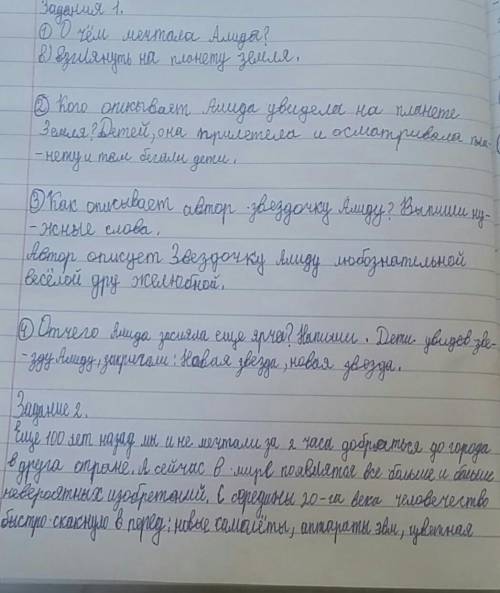 Задания 1.
① О чём мечтала Алиды?
в) взглянуть на планету земля.
② Кого описывает Алида увидела на планете
Земля? Детей, она прилетела и осматривала пла-
-нету и там бегали дети.
③ Как описывает автор звездочку Алиду? Выпиши ну-
-жные слова.
Автор описует Звездочку Алиду любознательной
весёлой дру желюбной.
④ Отчего Алида засияла еще ярче? Напиши. Дети увидев зве-
-зду Алиду, закричали: Новая звезда, новая звезда.
Задание 2.
Еще 100 лет назад мы и не мечтали за 2 часа добраться до города
в друга стране. А сейчас в мире появлятся все больше и больше
невероятных изобретений. С середины 20-га века человечество
быстро скакнуло в перед: новые самолёты, аппараты эвм, цветная